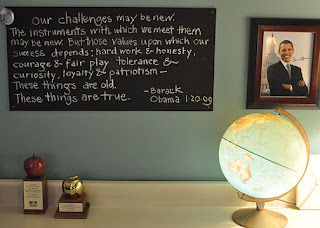 Our challenges may be new.
The instruments with which we meet them
may be new. But those values upon which our
success depends; hard work & honesty,
courage & fair play, tolerance &
curiosity, loyalty & patriotism -
These things are old.
These things are true.
-Barack
Obama 1-20-09